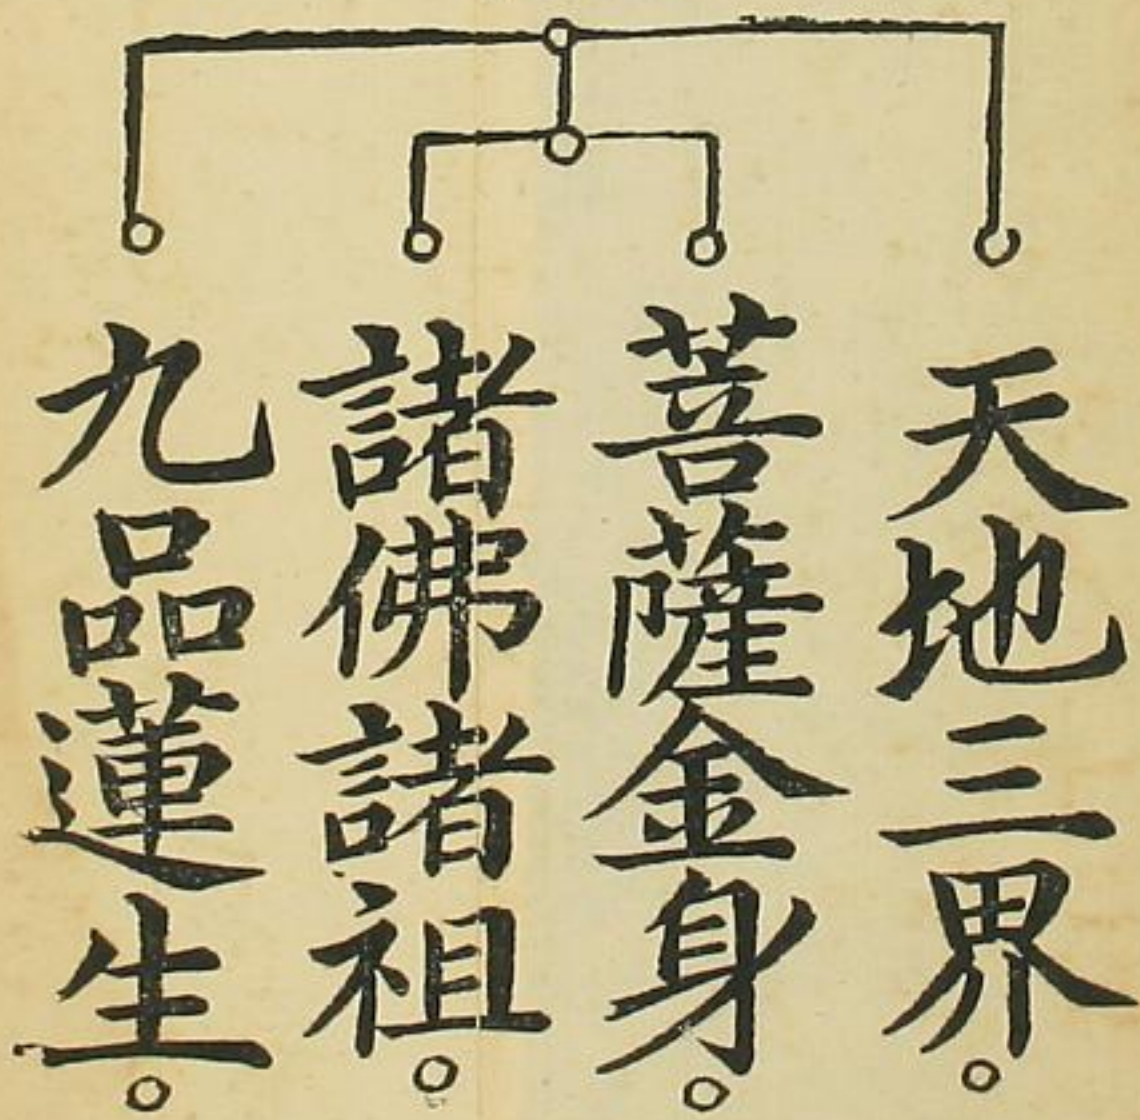 天地三界
菩薩金身
諸佛諸祖
九品蓮生